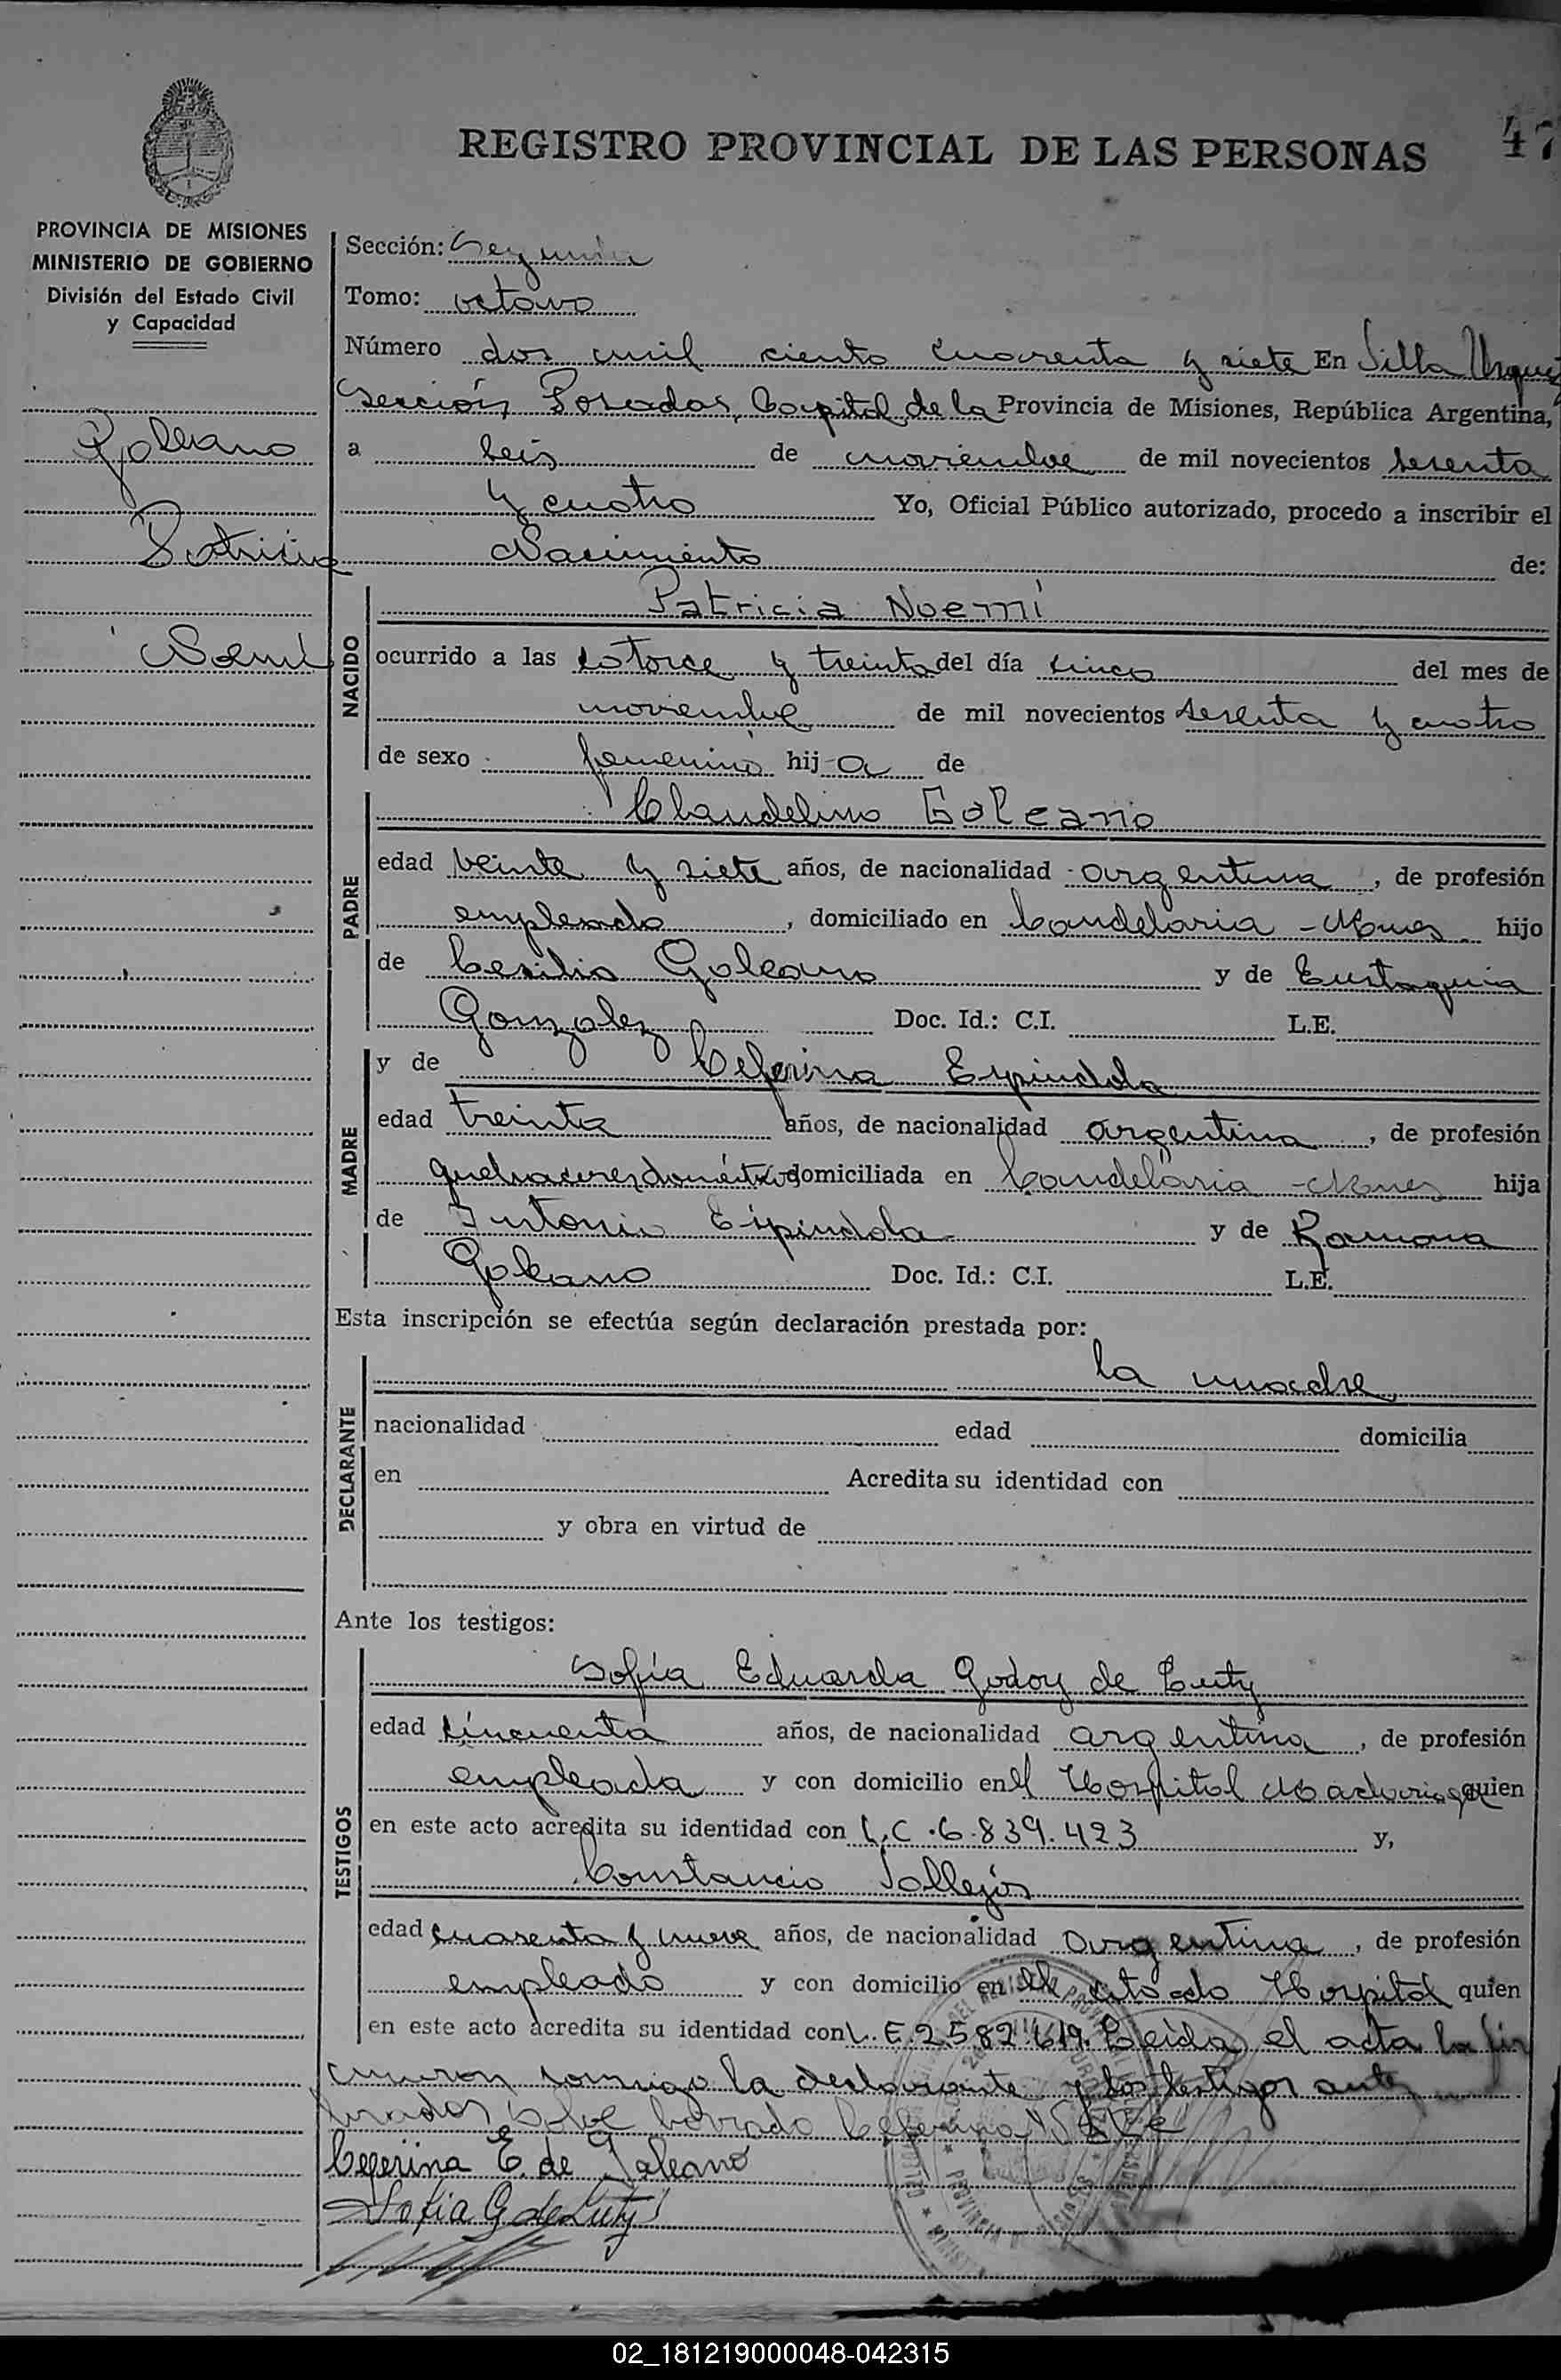 REGISTRO PROVINCIAL DE LAS PERSONAS 47
PROVINCIA DE MISIONES
MINISTERIO DE GOBIERNO
División del Estado Civil
y Capacidad
Galeano
Patricia
Noemí
Sección: Segunda
Tomo: octavo
Número dos mil ciento cuarenta y siete En Villa Urquiz
Sección, Posadas, Capital de la Provincia de Misiones, República Argentina,
a seis de noviembre de mil novecientos sesenta
y cuatro Yo, Oficial Público autorizado, procedo a inscribir el
Nacimiento de:
NACIDO
Patricia Noemí
ocurrido a las catorce y treinta del día cinco del mes de
noviembre de mil novecientos sesenta y cuatro
de sexo femenino hij a de
PADRE
Claudelino Galeano
edad veinte y siete años, de nacionalidad argentina, de profesión
empleado, domiciliado en Candelaria - Mnes hijo
de Cesilio Galeano y de Eustaquia
Gonzalez Doc. Id.: C.I. L.E.
MADRE
y de Ceferina Espindola
edad treinta años, de nacionalidad argentina, de profesión
quehaceres domésticos domiciliada en Candelaria - Mnes hija
de Antonio Espindola y de Ramona
Galeano Doc. Id.: C.I. L.E.
Esta inscripción se efectúa según declaración prestada por:
DECLARANTE
la madre
nacionalidad edad domicilia
en Acredita su identidad con
y obra en virtud de
Ante los testigos:
TESTIGOS
Sofía Eduarda Godoy de Luty
edad cincuenta años, de nacionalidad argentina, de profesión
empleada y con domicilio en el Hospital Madariaga quien
en este acto acredita su identidad con L.C. 6.839.423 y,
Constancio Vallejos
edad cuarenta y nueve años, de nacionalidad argentina, de profesión
empleado y con domicilio en el citado Hospital quien
en este acto acredita su identidad con L.E. 2.582.619. Leída el acta la fir
maron conmigo la declarante y los testigos ante
nombrados, salvo borrado Ceferina, Vale
Ceferina E. de Galeano
Sofia G de Luty
02_181219000048-042315